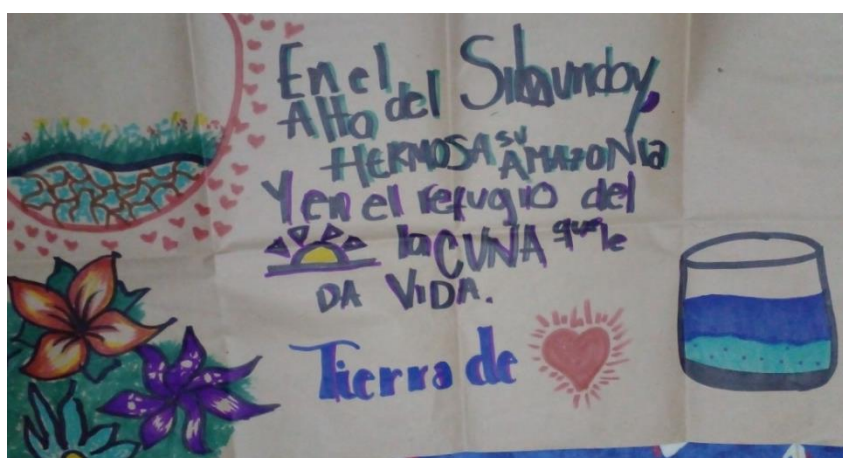 En el
Alto del Sibundoy,
HERMOSA su AMAZONIA
Y en el refugio del
la CUNA que le
DA VIDA.
Tierra de